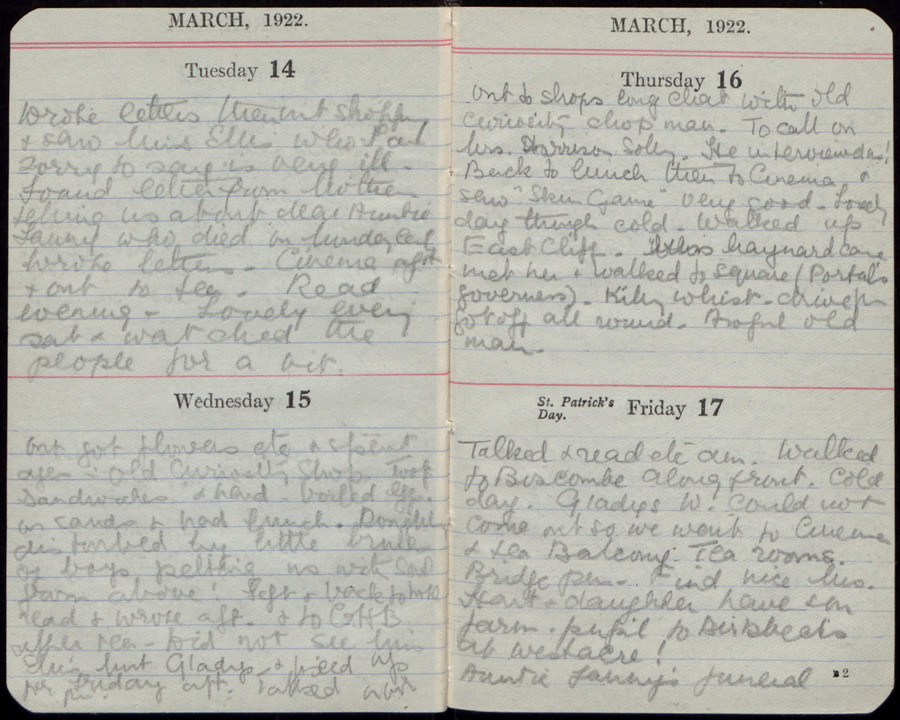 MARCH, 1922.
Tuesday 14
Wrote letters then out shopping
& saw Miss Ellis who I am
sorry to say is very ill.
Found letter from Mother
telling us about dear Auntie
Fanny who died in
Wrote letters. Cinema aft
& out to tea. Read
evening. Lovely evening
sat & watched the
people for a bit.
Wednesday 15
out got flowers etc & spent
ages in old Curiosity Shop. Took
sandwiches & hard-boiled eggs
on sands & had lunch. Donghs
disturbed by little brutes
of boys pelting us with sand
from above! Left & back to hotel
read & wrote aft. & to G.H.B.
after tea. Did not see Miss
Ellis but Gladys & fixed up
for Friday aft. Talked with
MARCH, 1922.
Thursday 16
out to shops long chat with old
curiosity shop man. To call on
Mrs. Harrison Solly. He interviewed us!
Back to lunch then to Cinema &
saw "Skin Game" very good. Lovely
day though cold. Walked up
East Cliff. Miss Maynard came
met her & walked to square (Portal's
governess). whist-drive
got off all round. Awful old
man.
St. Patrick's
Day.
Friday 17
Talked & read etc am. Walked
to Boscombe along front. Cold
day. Gladys W. could not
come out so we went to Cinema
& tea Balcony Tea rooms.
Bridge pm. Find nice Mrs.
Hart & daughter have son
farm-pupil to Birkbecks
at Westacre!
Auntie Fanny's funeral
2